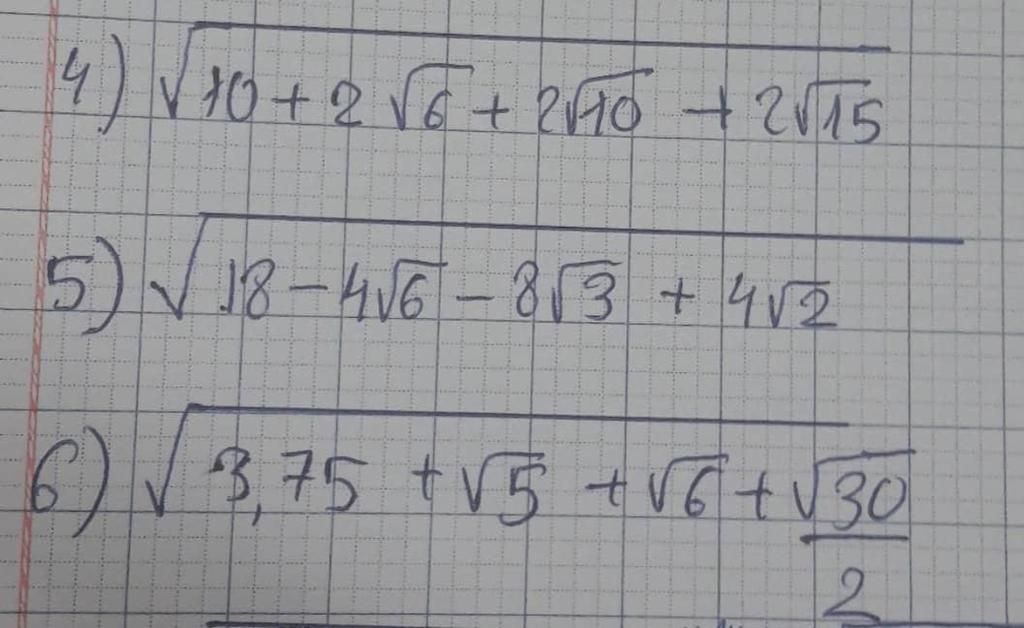 4) √(10 + 2√6 + 2√10 + 2√15)
5) √(18 - 4√6 - 8√3 + 4√2)
6) √(3,75 + √5 + √6 + √30/2)